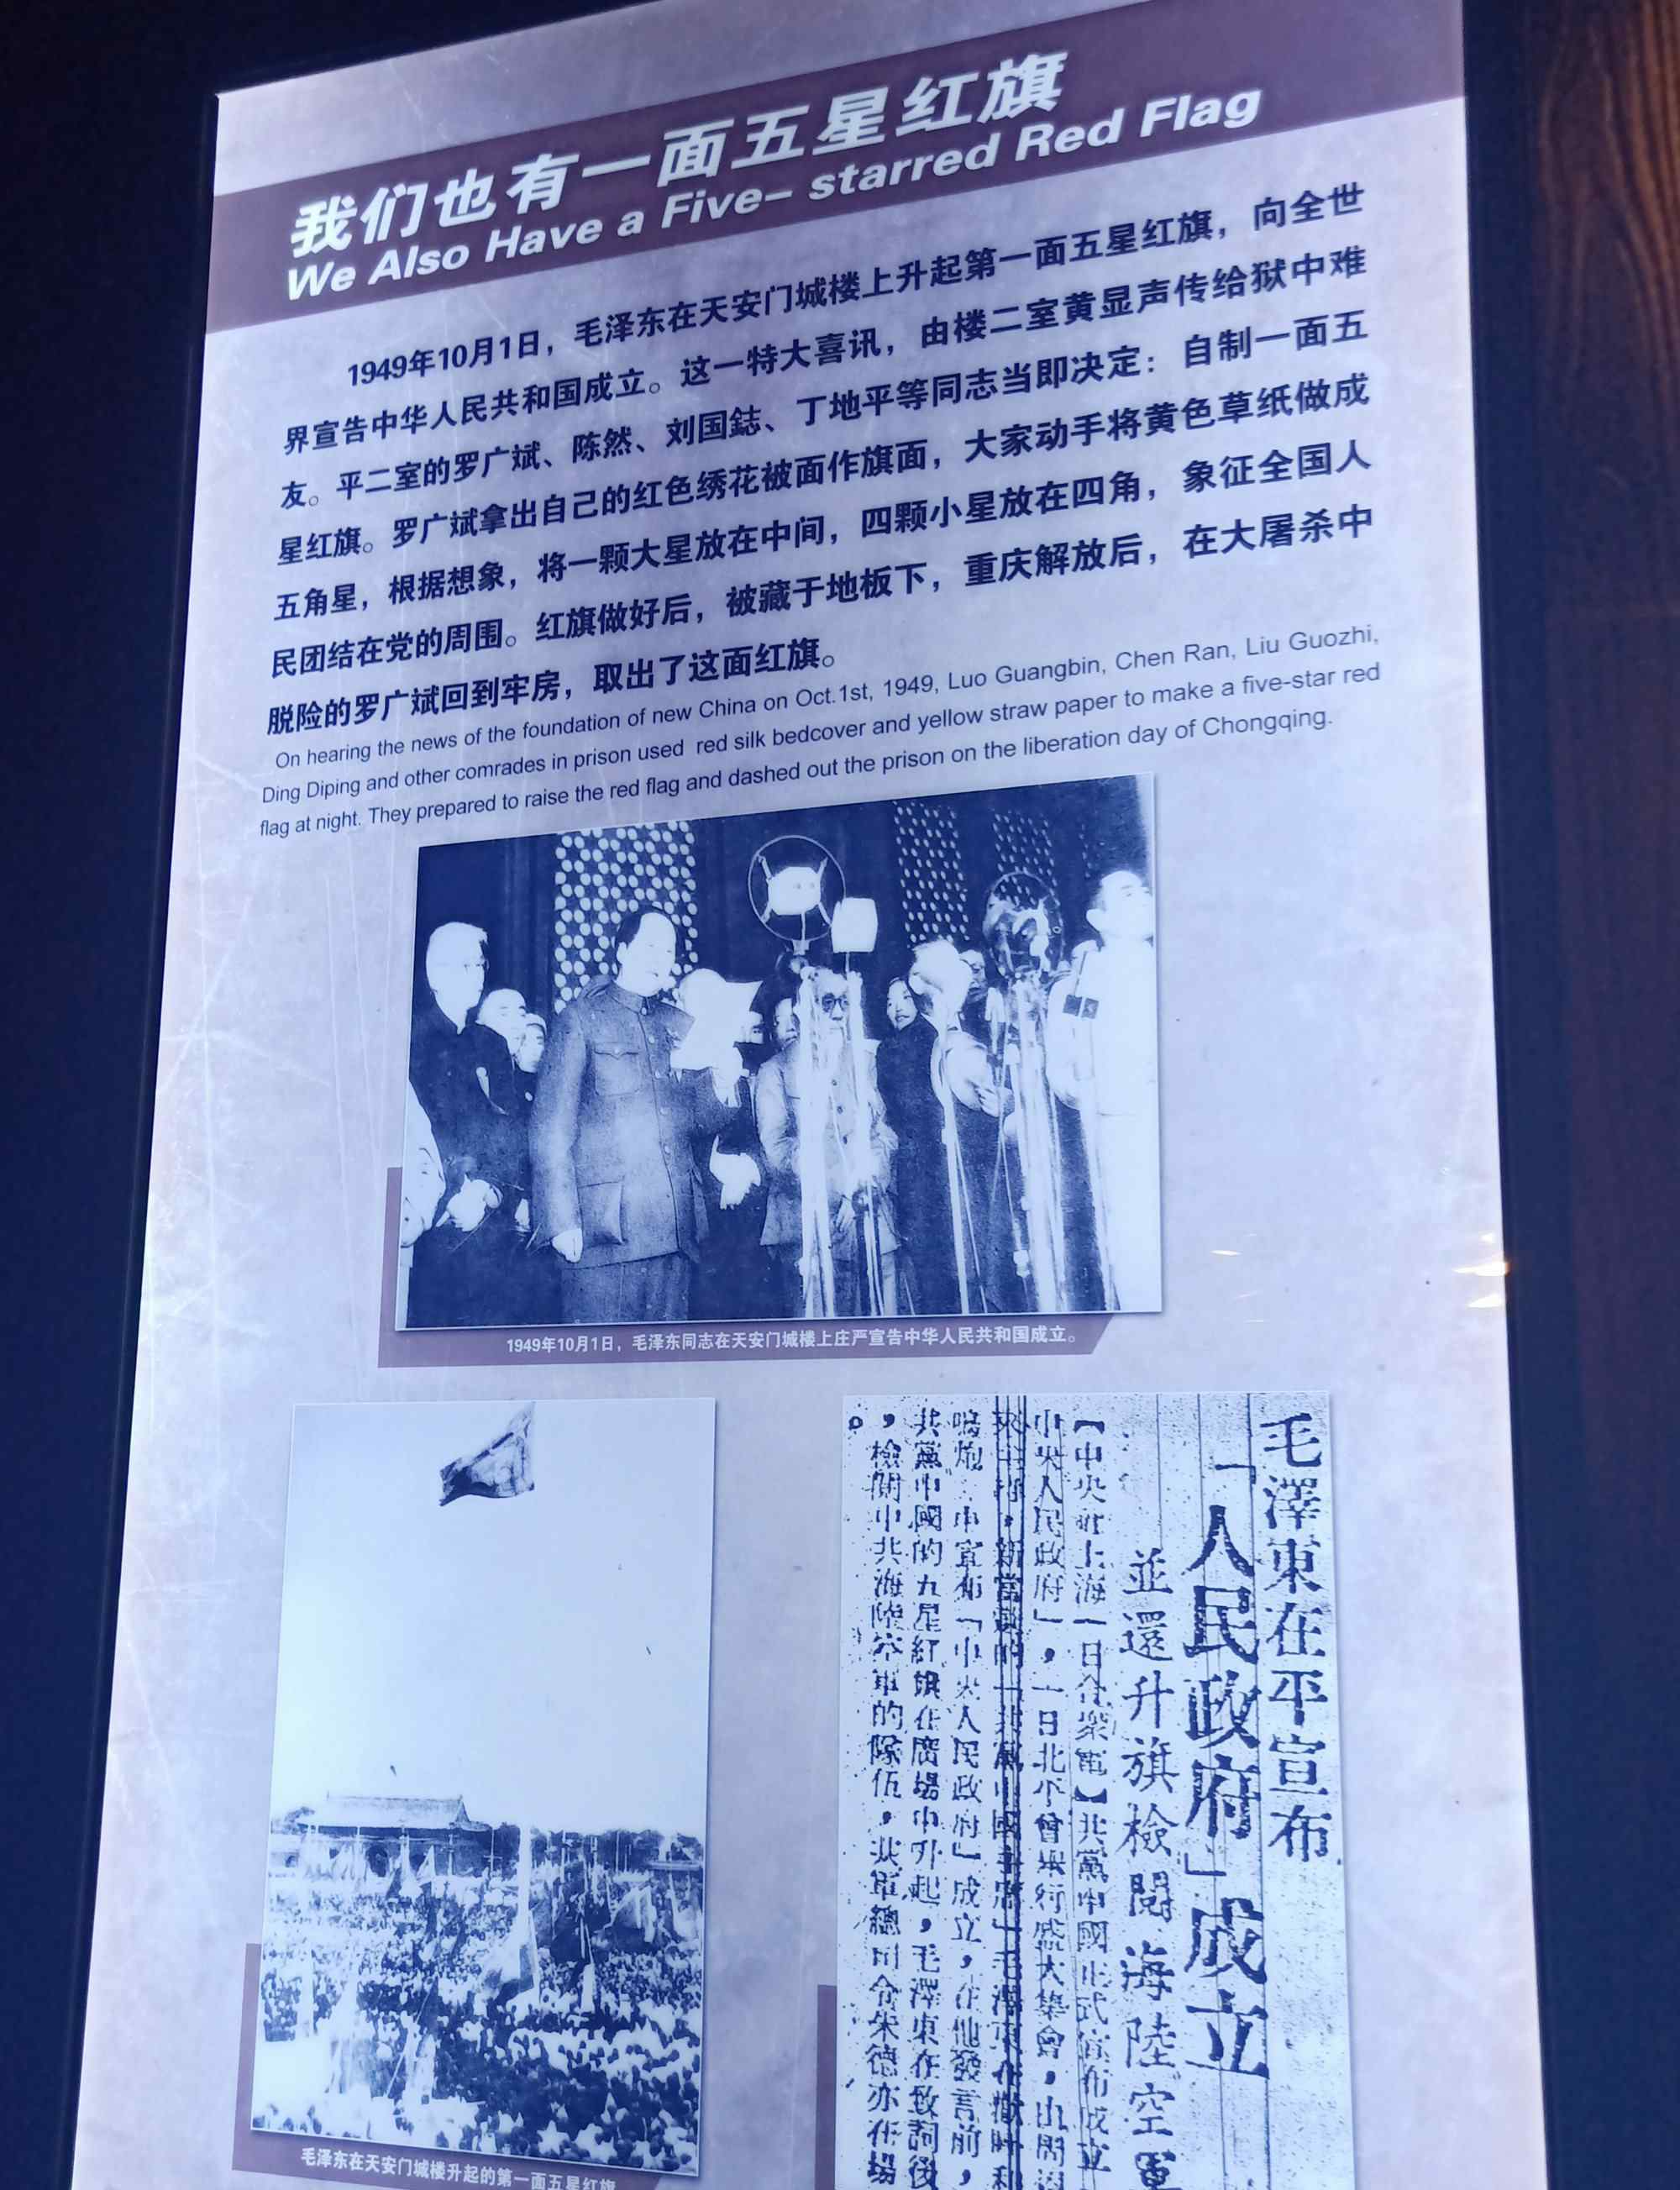 我们也有一面五星红旗
We Also Have a Five- starred Red Flag
1949年10月1日，毛泽东在天安门城楼上升起第一面五星红旗，向全世
界宣告中华人民共和国成立。这一特大喜讯，由楼二室黄显声传给狱中难
友。平二室的罗广斌、陈然、刘国鋕、丁地平等同志当即决定：自制一面五
星红旗。罗广斌拿出自己的红色绣花被面作旗面，大家动手将黄色草纸做成
五角星，根据想象，将一颗大星放在中间，四颗小星放在四角，象征全国人
民团结在党的周围。红旗做好后，被藏于地板下，重庆解放后，在大屠杀中
脱险的罗广斌回到牢房，取出了这面红旗。
On hearing the news of the foundation of new China on Oct.1st, 1949, Luo Guangbin, Chen Ran, Liu Guozhi,
Ding Diping and other comrades in prison used red silk bedcover and yellow straw paper to make a five-star red
flag at night. They prepared to raise the red flag and dashed out the prison on the liberation day of Chongqing.
1949年10月1日，毛泽东同志在天安门城楼上庄严宣告中华人民共和国成立。
毛泽东在天安门城楼升起的第一面五星红旗
毛澤東在平宣布
「人民政府」成立
並還升旗檢閱海陸空軍
【中央社上海一日合眾電】共黨中國正式宣布成立
中央人民政府」，一日北平曾舉行盛大集會，
鳴炮 中宣佈「中央人民政府」成立，在他發言前，
共黨中國的五星紅旗在廣場中升起，毛澤東在致詞後
，檢閱中共海陸空軍的隊伍，共軍總司令朱德亦在場
。